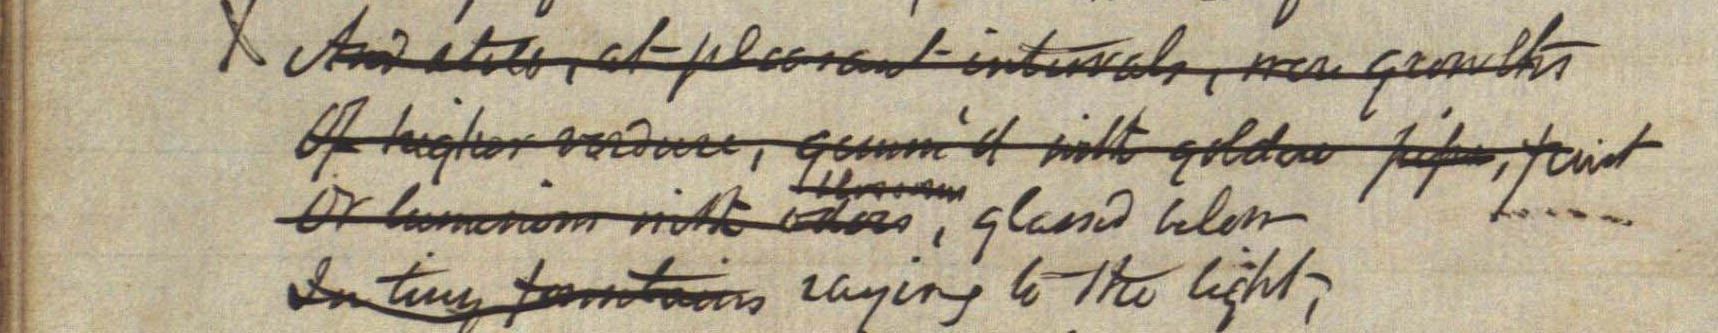 X And stile, at pleasant intervals, were growths
Of higher verdure, gumm'd with golden pips, fruit
blossoms
Or luminous with odors, glassed below
In tiny fountains raying to the light,